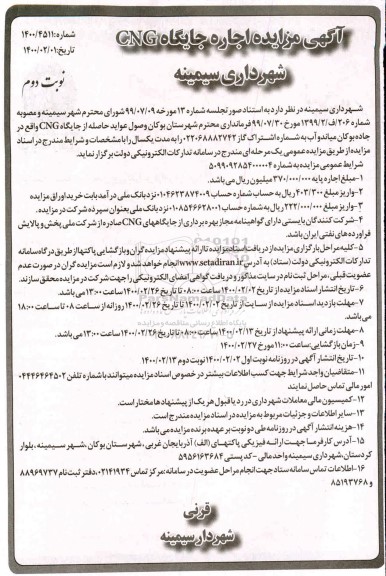 آگهی مزایده اجاره جایگاه CNG
شهرداری سیمینه
شماره: ۱۴۰۰/۴۵۱۱
تاریخ: ۱۴۰۰/۰۲/۰۱
نوبت دوم
شهرداری سیمینه در نظر دارد به استناد صورتجلسه شماره ۱۳ مورخه ۹۹/۰۷/۰۹ شورای محترم شهر سیمینه و مصوبه
شماره ۲۰۶/ف/۱۳۹۹/۲ مورخ ۹۹/۰۷/۳۰ فرمانداری محترم شهرستان بوکان وصول عواید حاصله از جایگاه CNG واقع در
جاده بوکان میاندوآب به شماره اشتراک گاز ۰۲۲۰۶۸۸۸۲۷۴۲ را به مدت یکسال را با مشخصات و شرایط مندرج در اسناد
مزایده از طریق مزایده عمومی یک مرحله ای مندرج در سامانه تدارکات الکترونیکی دولت برگزار نماید.
شرایط عمومی مزایده به شماره ۵۰۹۹۰۹۲۸۵۴۰۰۰۰۴
۱- مبلغ اجاره پایه ۳۷۰/۰۰۰/۰۰۰ میلیون ریال می باشد.
۲- واریز مبلغ ۴۰۳/۳۰۰ ریال به حساب شماره ۰۱۰۴۶۲۳۸۷۴۰۰۹ نزد بانک ملی درآمد بابت خرید اوراق مزایده
۳- واریز مبلغ ۲۲۲/۰۰۰/۰۰۰ ریال به شماره حساب ۰۱۰۸۵۴۶۶۲۸۰۰۱ نزد بانک ملی بعنوان سپرده شرکت در مزایده.
۴- شرکت کنندگان بایستی دارای گواهینامه مجاز بهره برداری از جایگاههای CNG صادره از شرکت ملی پخش و پالایش
فرآورده های نفتی ایران باشد.
۵- کلیه مراحل برگزاری مزایده از دریافت اسناد مزایده تا ارائه پیشنهاد مزایده گران و بازگشایی پاکتها از طریق درگاه سامانه
تدارکات الکترونیکی دولت (ستاد) به آدرس www.setadiran.ir انجام خواهد شد و لازم است مزایده گران در صورت عدم
عضویت قبلی، مراحل ثبت نام در سایت مذکور و دریافت گواهی امضای الکترونیکی را جهت شرکت در مزایده محقق سازند.
۶- تاریخ انتشار اسناد مزایده از تاریخ ۱۴۰۰/۰۲/۰۲ ساعت ۰۸:۰۰ تا تاریخ ۱۴۰۰/۰۲/۲۶ ساعت ۱۳:۰۰ می باشد.
۷- مهلت بازدید اسناد مزایده از سایت از تاریخ ۱۴۰۰/۰۲/۰۲ تا تاریخ ۱۴۰۰/۰۲/۲۶ روزانه از ساعت ۰۸ تا ساعت ۱۸:۰۰
می باشد.
۸- مهلت زمانی ارائه پیشنهاد از تاریخ ۱۴۰۰/۰۲/۱۳ ساعت ۰۸:۰۰ تا تاریخ ۱۴۰۰/۰۲/۲۶ ساعت ۱۳:۰۰ می باشد.
۹- زمان بازگشایی: ساعت ۱۱:۰۰ مورخ ۱۴۰۰/۰۲/۲۷
۱۰- تاریخ انتشار آگهی در روزنامه نوبت اول ۱۴۰۰/۰۲/۰۲ نوبت دوم ۱۴۰۰/۰۲/۱۳
۱۱- متقاضیان واجد شرایط جهت کسب اطلاعات بیشتر در خصوص اسناد مزایده میتوانند با شماره تلفن ۰۴۴۴۶۴۶۴۵۰۲
امور مالی تماس حاصل نمایند
۱۲- کمیسیون مالی معاملات شهرداری در رد یا قبول هر یک از پیشنهادها مختار است.
۱۳- سایر اطلاعات و جزئیات مربوط به مزایده در اسناد مزایده مندرج است.
۱۴- هزینه انتشار آگهی در روزنامه طی دو نوبت بر عهده برنده مزایده می باشد.
۱۵- آدرس کارفرما جهت ارائه فیزیکی پاکتهای (الف) آذربایجان غربی، شهرستان بوکان، شهر سیمینه، بلوار
کردستان، شهرداری سیمینه واحد مالی - کدپستی ۵۹۵۶۱۶۳۶۸۴
۱۶- اطلاعات تماس سامانه ستاد جهت انجام مراحل عضویت در سامانه: مرکز تماس ۰۲۱۴۱۹۳۴، دفتر ثبت نام ۸۸۹۶۹۷۳۷
و ۸۵۱۹۳۷۶۸
قرنی
شهردار سیمینه